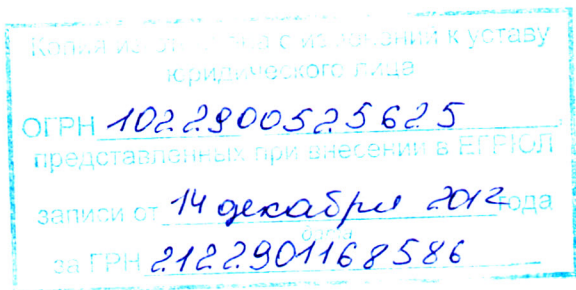 Копия из
с изменений к уставу
юридического лица
ОГРН 1022900525625
представленных при внесении в ЕГРЮЛ
записи от 14 декабря 2012 года
дата
за ГРН 2122901168586